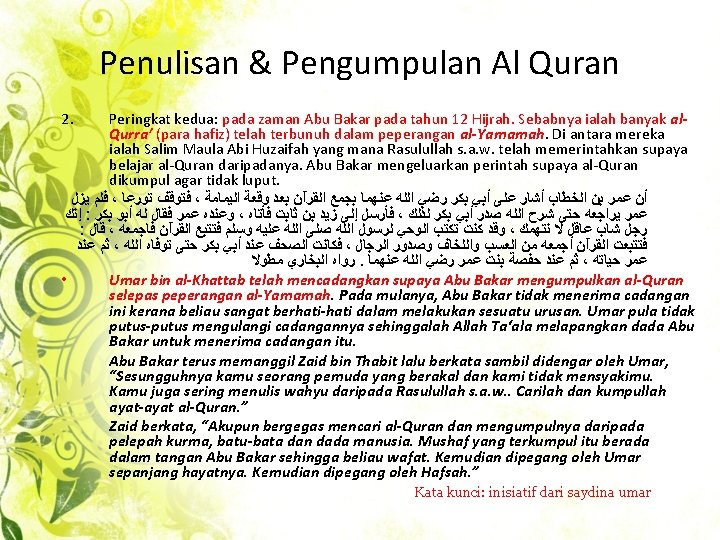 Penulisan & Pengumpulan Al Quran
2. Peringkat kedua: pada zaman Abu Bakar pada tahun 12 Hijrah. Sebabnya ialah banyak al-
Qurra' (para hafiz) telah terbunuh dalam peperangan al-Yamamah. Di antara mereka
ialah Salim Maula Abi Huzaifah yang mana Rasulullah s.a.w. telah memerintahkan supaya
belajar al-Quran daripadanya. Abu Bakar mengeluarkan perintah supaya al-Quran
dikumpul agar tidak luput.
أن عمر بن الخطاب أشار على أبي بكر رضي الله عنهما بجمع القرآن بعد وقعة اليمامة ، فتوقف تورعا ، فلم يزل
عمر يراجعه حتى شرح الله صدر أبي بكر لذلك ، فأرسل إلى زيد بن ثابت فأتاه ، وعنده عمر فقال له أبو بكر : إنك
رجل شاب عاقل لا نتهمك ، وقد كنت تكتب الوحي لرسول الله صلى الله عليه وسلم فتتبع القرآن فاجمعه ، قال :
فتتبعت القرآن أجمعه من العسب واللخاف وصدور الرجال ، فكانت الصحف عند أبي بكر حتى توفاه الله ، ثم عند
عمر حياته ، ثم عند حفصة بنت عمر رضي الله عنهما . رواه البخاري مطولا
• Umar bin al-Khattab telah mencadangkan supaya Abu Bakar mengumpulkan al-Quran
selepas peperangan al-Yamamah. Pada mulanya, Abu Bakar tidak menerima cadangan
ini kerana beliau sangat berhati-hati dalam melakukan sesuatu urusan. Umar pula tidak
putus-putus mengulangi cadangannya sehinggalah Allah Ta'ala melapangkan dada Abu
Bakar untuk menerima cadangan itu.
Abu Bakar terus memanggil Zaid bin Thabit lalu berkata sambil didengar oleh Umar,
"Sesungguhnya kamu seorang pemuda yang berakal dan kami tidak mensyakimu.
Kamu juga sering menulis wahyu daripada Rasulullah s.a.w.. Carilah dan kumpullah
ayat-ayat al-Quran."
Zaid berkata, "Akupun bergegas mencari al-Quran dan mengumpulnya daripada
pelepah kurma, batu-bata dan dada manusia. Mushaf yang terkumpul itu berada
dalam tangan Abu Bakar sehingga beliau wafat. Kemudian dipegang oleh Umar
sepanjang hayatnya. Kemudian dipegang oleh Hafsah."
Kata kunci: inisiatif dari saydina umar